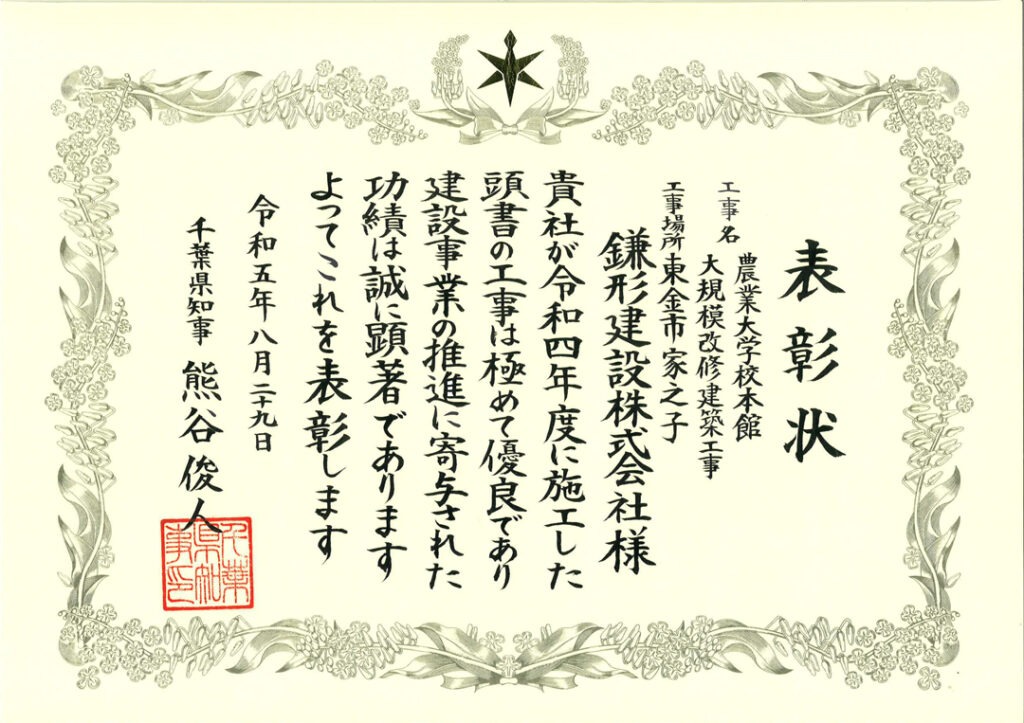 表彰状
工事名 農業大学校本館
大規模改修建築工事
工事場所 東金市家之子
鎌形建設株式会社様
貴社が令和四年度に施工した
頭書の工事は極めて優良であり
建設事業の推進に寄与された
功績は誠に顕著であります
よってこれを表彰します
令和五年八月二十九日
千葉県知事 熊谷俊人
千葉
県知
事印